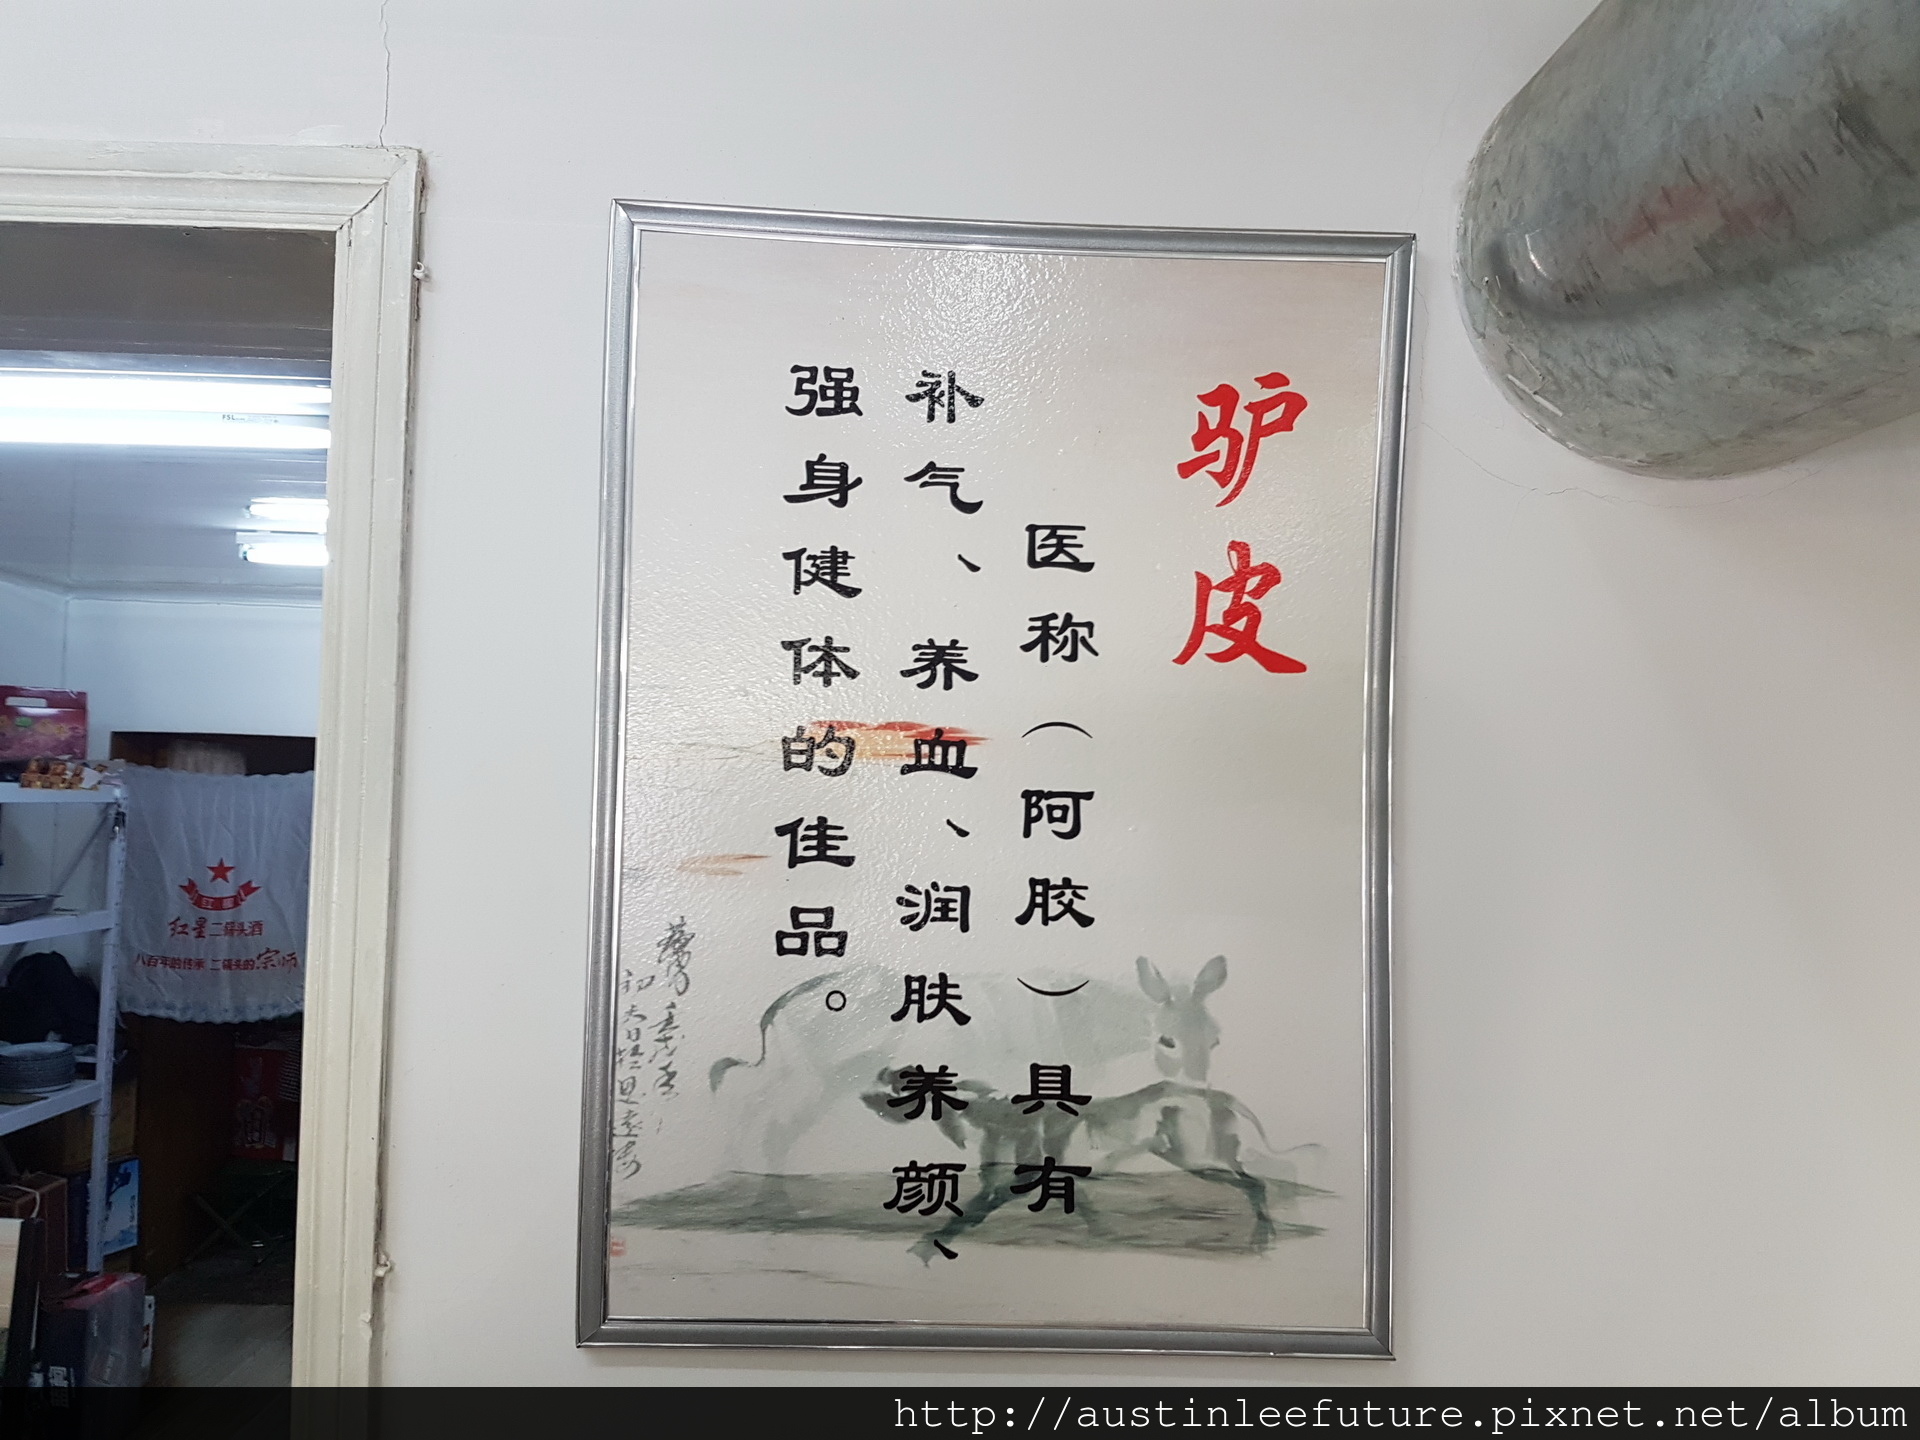 驴皮
医称（阿胶）具有
补气、养血、润肤养颜、
强身健体的佳品。
FSL
红星
红星二锅头酒
八百年的传承 二锅头的宗师
http://austinleefuture.pixnet.net/album